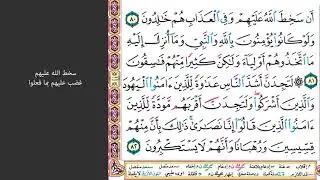 أَن سَخِطَ ٱللَّهُ عَلَيْهِمْ وَفِي ٱلْعَذَابِ هُمْ خَٰلِدُونَ ٨٠
وَلَوْ كَانُوا۟ يُؤْمِنُونَ بِٱللَّهِ وَٱلنَّبِيِّ وَمَآ أُنزِلَ إِلَيْهِ
مَا ٱتَّخَذُوهُمْ أَوْلِيَآءَ وَلَٰكِنَّ كَثِيرًا مِّنْهُمْ فَٰسِقُونَ ٨١
لَتَجِدَنَّ أَشَدَّ ٱلنَّاسِ عَدَٰوَةً لِّلَّذِينَ ءَامَنُوا۟ ٱلْيَهُودَ
وَٱلَّذِينَ أَشْرَكُوا۟ وَلَتَجِدَنَّ أَقْرَبَهُم مَّوَدَّةً لِّلَّذِينَ
ءَامَنُوا۟ ٱلَّذِينَ قَالُوٓا۟ إِنَّا نَصَٰرَىٰ ذَٰلِكَ بِأَنَّ مِنْهُمْ
قِسِّيسِينَ وَرُهْبَانًا وَأَنَّهُمْ لَا يَسْتَكْبِرُونَ ٨٢
سخط الله عليهم
غضب عليهم بما فعلوا